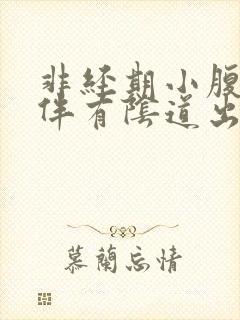 非經期小腹
伴有陰道出
慕蘭忘情